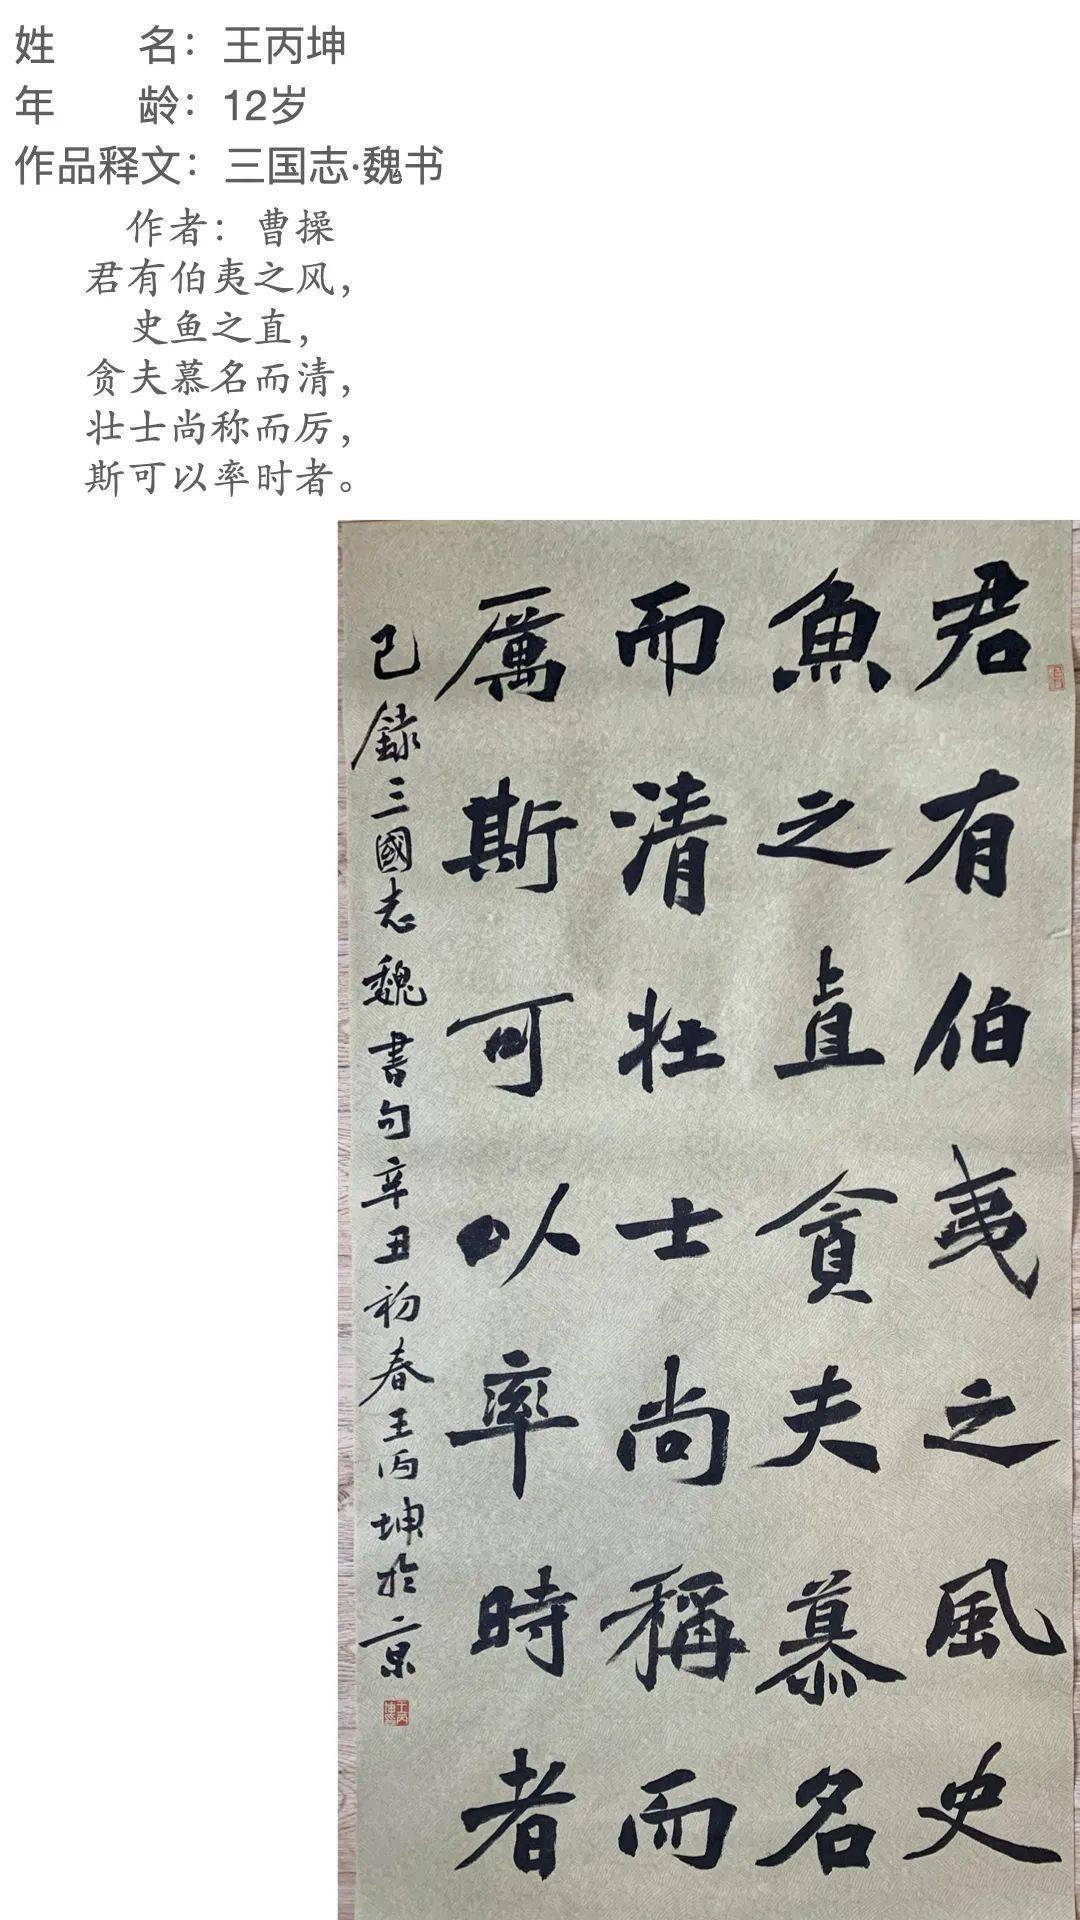 姓　　名：王丙坤
年　　龄：12岁
作品释文：三国志·魏书
作者：曹操
君有伯夷之风，
史鱼之直，
贪夫慕名而清，
壮士尚称而厉，
斯可以率时者。
君有伯夷之風史
魚之直貪夫慕名
而清壯士尚稱而
厲斯可以率時者
已錄三國志魏書句辛丑初春王丙坤於京